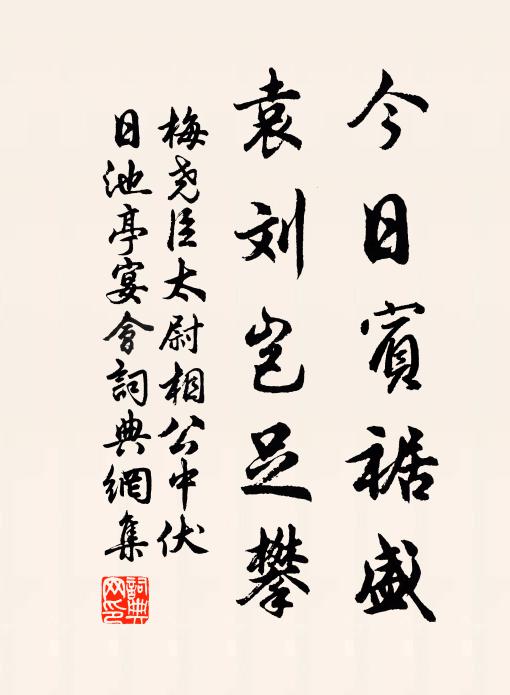 今日賓裾盛
袁刘岂足攀
梅尧臣太尉相公中伏
日池亭宴會詞典網集
詞典網印